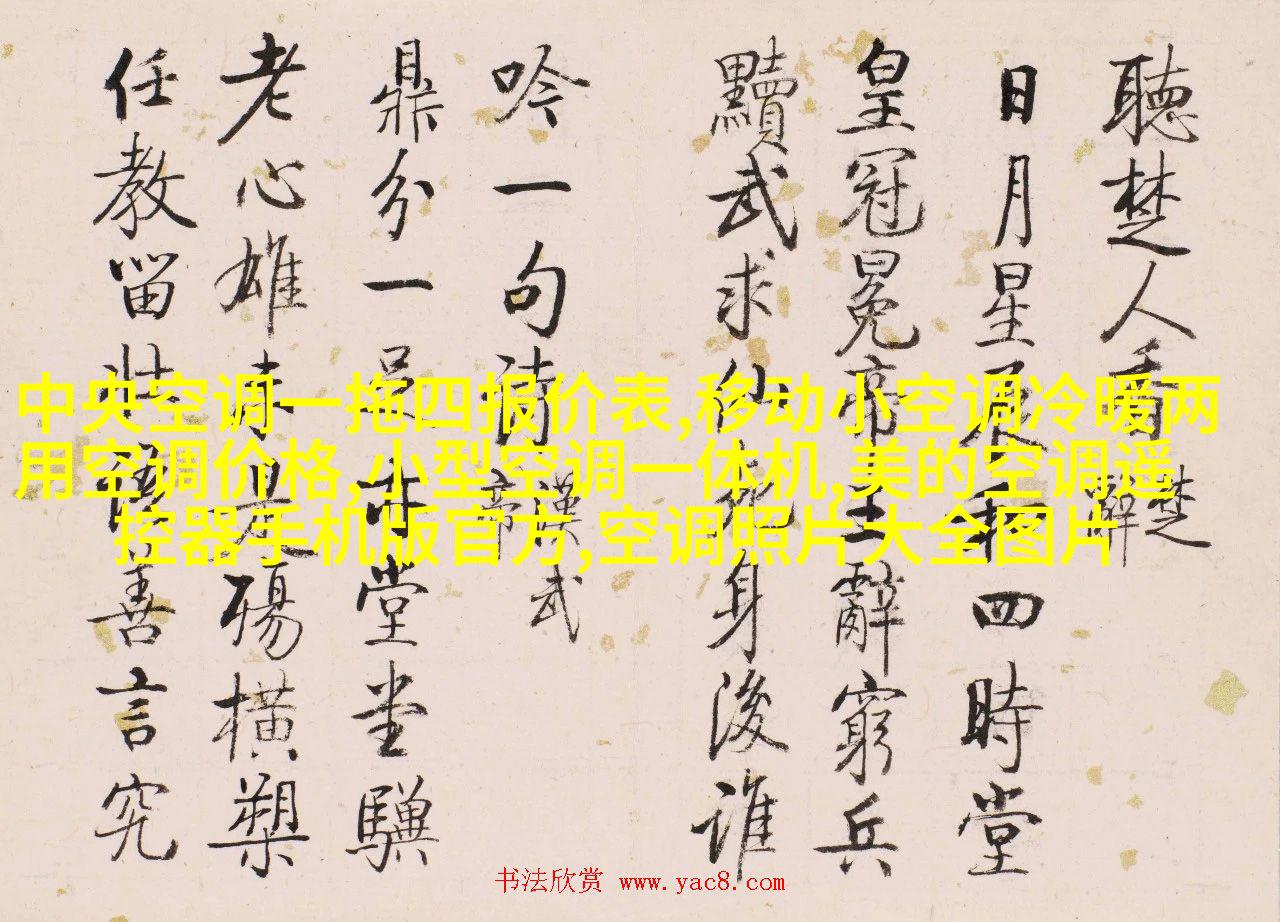 聽楚人看 楚辭
日月星辰和四時堂
皇冠冕帝王辭窮兵
黷武求仙死身後誰
吟一句詩 漢武帝
鼎分一足亦堂堂驥
老心雄未是殤橫槊
任教留壯善言究
中央空调一拖四报价表,移动小空调冷暖两
用空调价格,小型空调一体机,美的空调遥
控器手机版官方,空调照片大全图片
书法欣赏 www.yac8.com